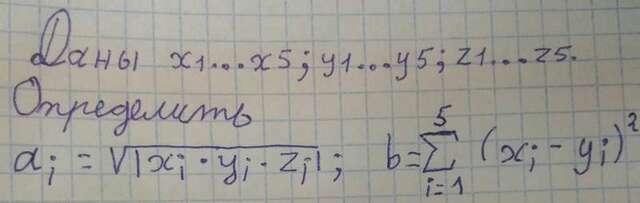 Даны x1...x5; y1...y5; z1...z5.
Определить
aᵢ = √|xᵢ · yᵢ · zᵢ|; b = ∑ᵢ₌₁⁵ (xᵢ - yᵢ)²